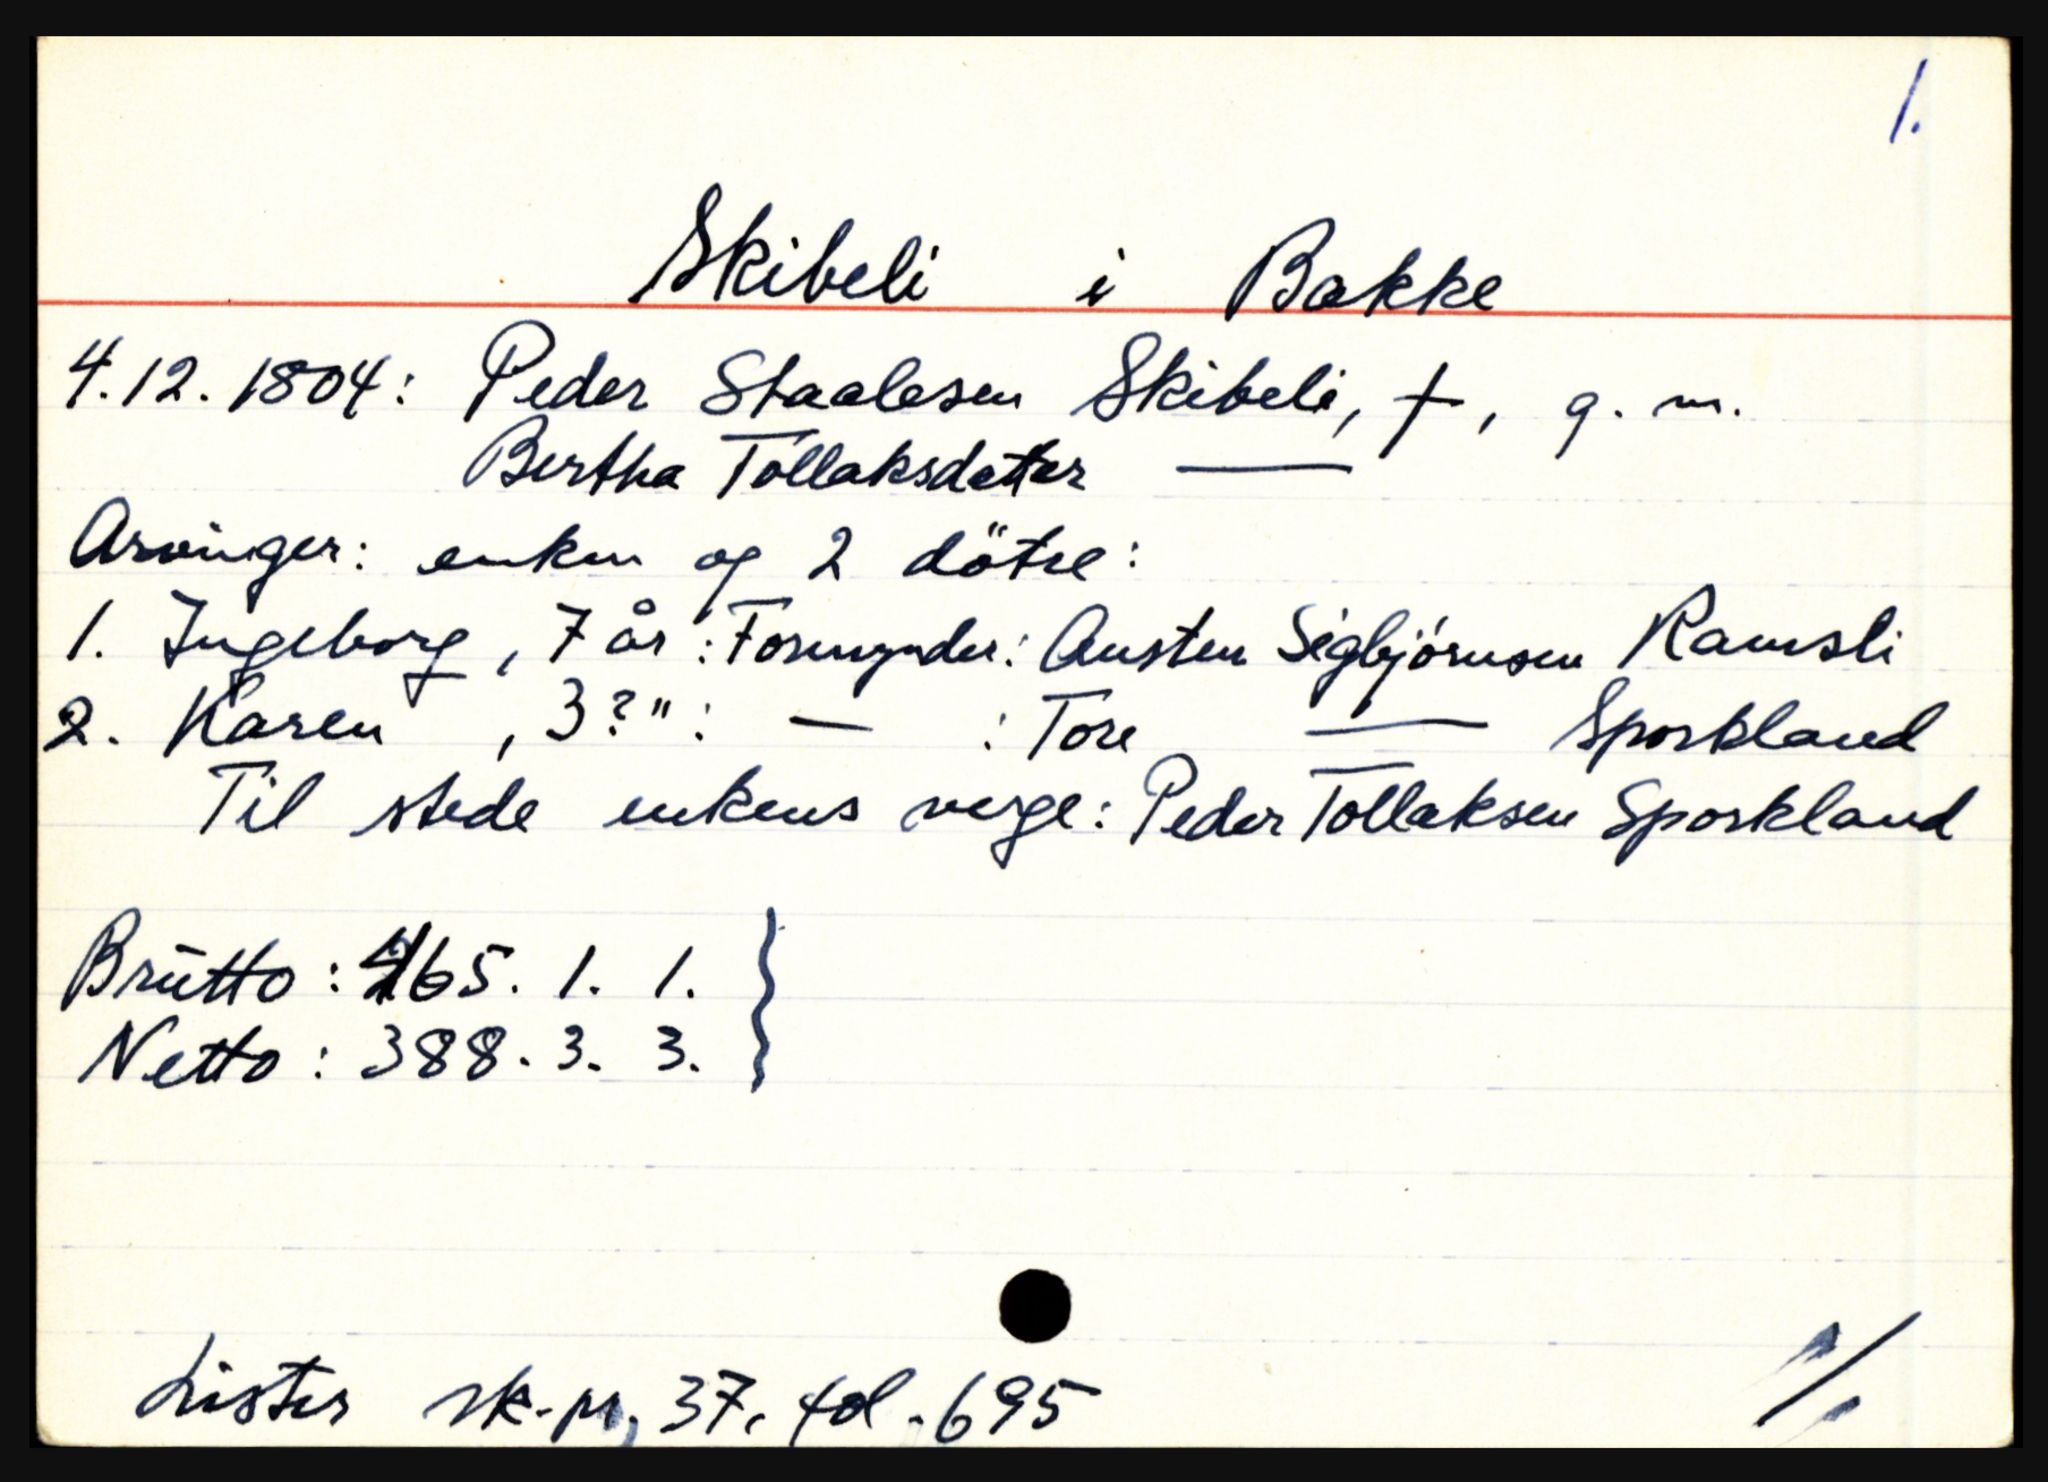 1.
Skibeli i Bakke
4.12.1804: Peder Staalesen Skibeli, †, g. m.
Bertha Tollaksdatter —
Arvinger: enken og 2 dötre:
1. Ingeborg, 7 år : Formynder: Austen Sigbjørnsen Ramsli
2. Karen , 3? " : — : Tore — Sporkland
Til stede enkens verge: Peder Tollaksen Sporkland
Brutto: 465. 1. 1.
Netto: 388. 3. 3.
Lister sk.pr. 37, fol. 695